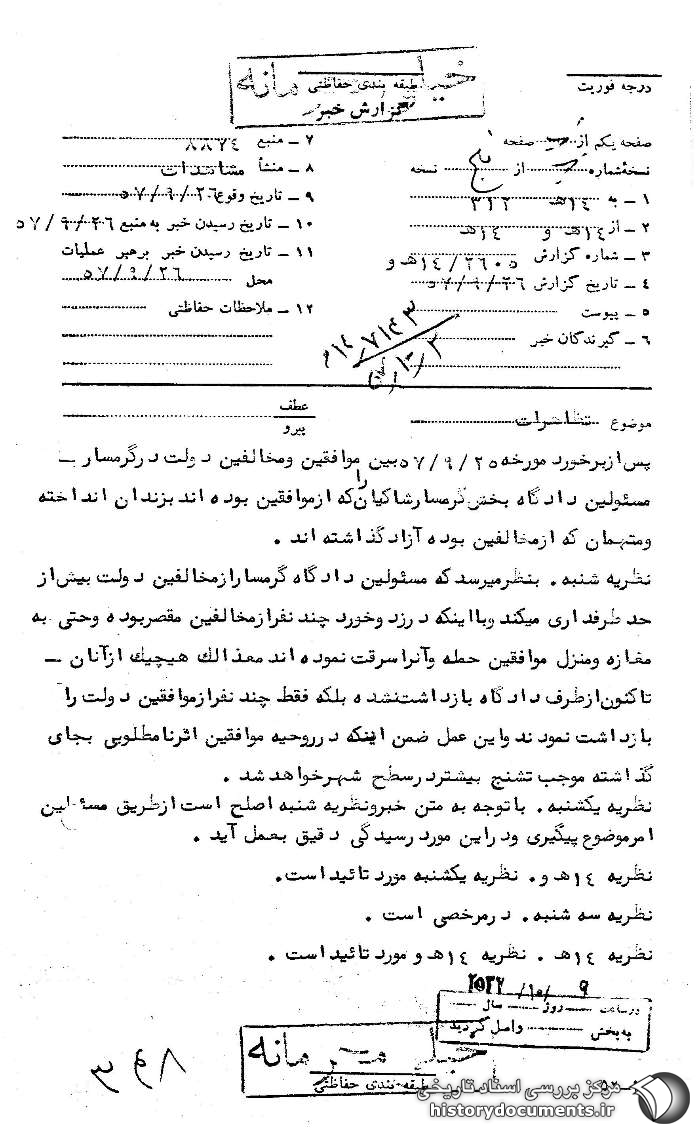 خیلی محرمانه
طبقه بندی حفاظتی
گزارش خبر
درجه فوریت
صفحه یکم از صفحه
نسخه شماره از پنج نسخه
۱ ـ به ۱۴هـ ۳۱۲
۲ ـ از ۱۴هـ و ۱۴هـ
۳ ـ شماره گزارش ۱۴/۲۶۰۵هـ و
۴ ـ تاریخ گزارش ۵۷/۹/۲۶
۵ ـ پیوست
۶ ـ گیرندگان خبر
۷ ـ منبع ۸۸۷۴
۸ ـ منشأ مشاهدات
۹ ـ تاریخ وقوع ۵۷/۹/۲۶
۱۰ ـ تاریخ رسیدن خبر به منبع ۵۷/۹/۲۶
۱۱ ـ تاریخ رسیدن خبر برهبر عملیات
محل ۵۷/۹/۲۶
۱۲ ـ ملاحظات حفاظتی
۱۴/۷۱۴۳
۵۷/۱۰/۲
موضوع تظاهرات
عطف
پیرو
پس از برخورد مورخه ۵۷/۹/۲۵ بین موافقین ومخالفین دولت درگرمسار ـ
مسئولین دادگاه بخش گرمسار شاکیان را که ازموافقین بوده اند بزندان انداخته
ومتهمان که ازمخالفین بوده آزاد گذاشته اند .
نظریه شنبه . بنظرمیرسد که مسئولین دادگاه گرمسار ازمخالفین دولت بیش از
حد طرفداری میکند وبا اینکه درزد وخورد چند نفر ازمخالفین مقصربوده وحتی به
مغازه ومنزل موافقین حمله وآنرا سرقت نموده اند معذالك هیچیك ازآنان ـ
تاکنون ازطرف دادگاه بازداشت نشده بلکه فقط چند نفر ازموافقین دولت را
بازداشت نمودند واین عمل ضمن اینکه درروحیه موافقین اثرنامطلوبی بجای
گذاشته موجب تشنج بیشتر درسطح شهر خواهد شد .
نظریه یکشنبه . با توجه به متن خبر ونظریه شنبه اصلح است ازطریق مسئولین
امر موضوع پیگیری ودر این مورد رسیدگی دقیق بعمل آید .
نظریه ۱۴هـ و . نظریه یکشنبه مورد تائید است.
نظریه سه شنبه . درمرخصی است .
نظریه ۱۴هـ . نظریه ۱۴هـ و مورد تائید است .
۹ /۱۰/ ۲۵۳۷
درساعت روز سال
به بخش واصل گردید
خیلی محرمانه
طبقه بندی حفاظتی
مرکز بررسی اسناد تاریخی
historydocuments.ir